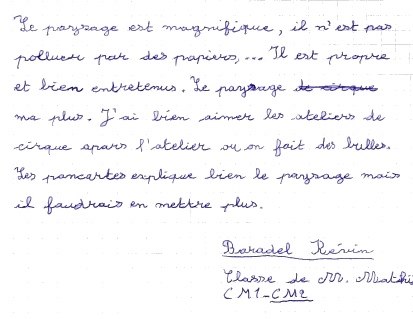 Le paysage est magnifique, il n'est pas
polluer par des papiers,... Il est propre
et bien entretenus. Le paysage de cirque
ma plus. J'ai bien aimer les ateliers de
cirque apars l'atelier ou on fait des bulles.
Les pancartes explique bien le paysage mais
il faudrais en mettre plus.
Baradel Kévin
Classe de M. Mathis
CM1-CM2